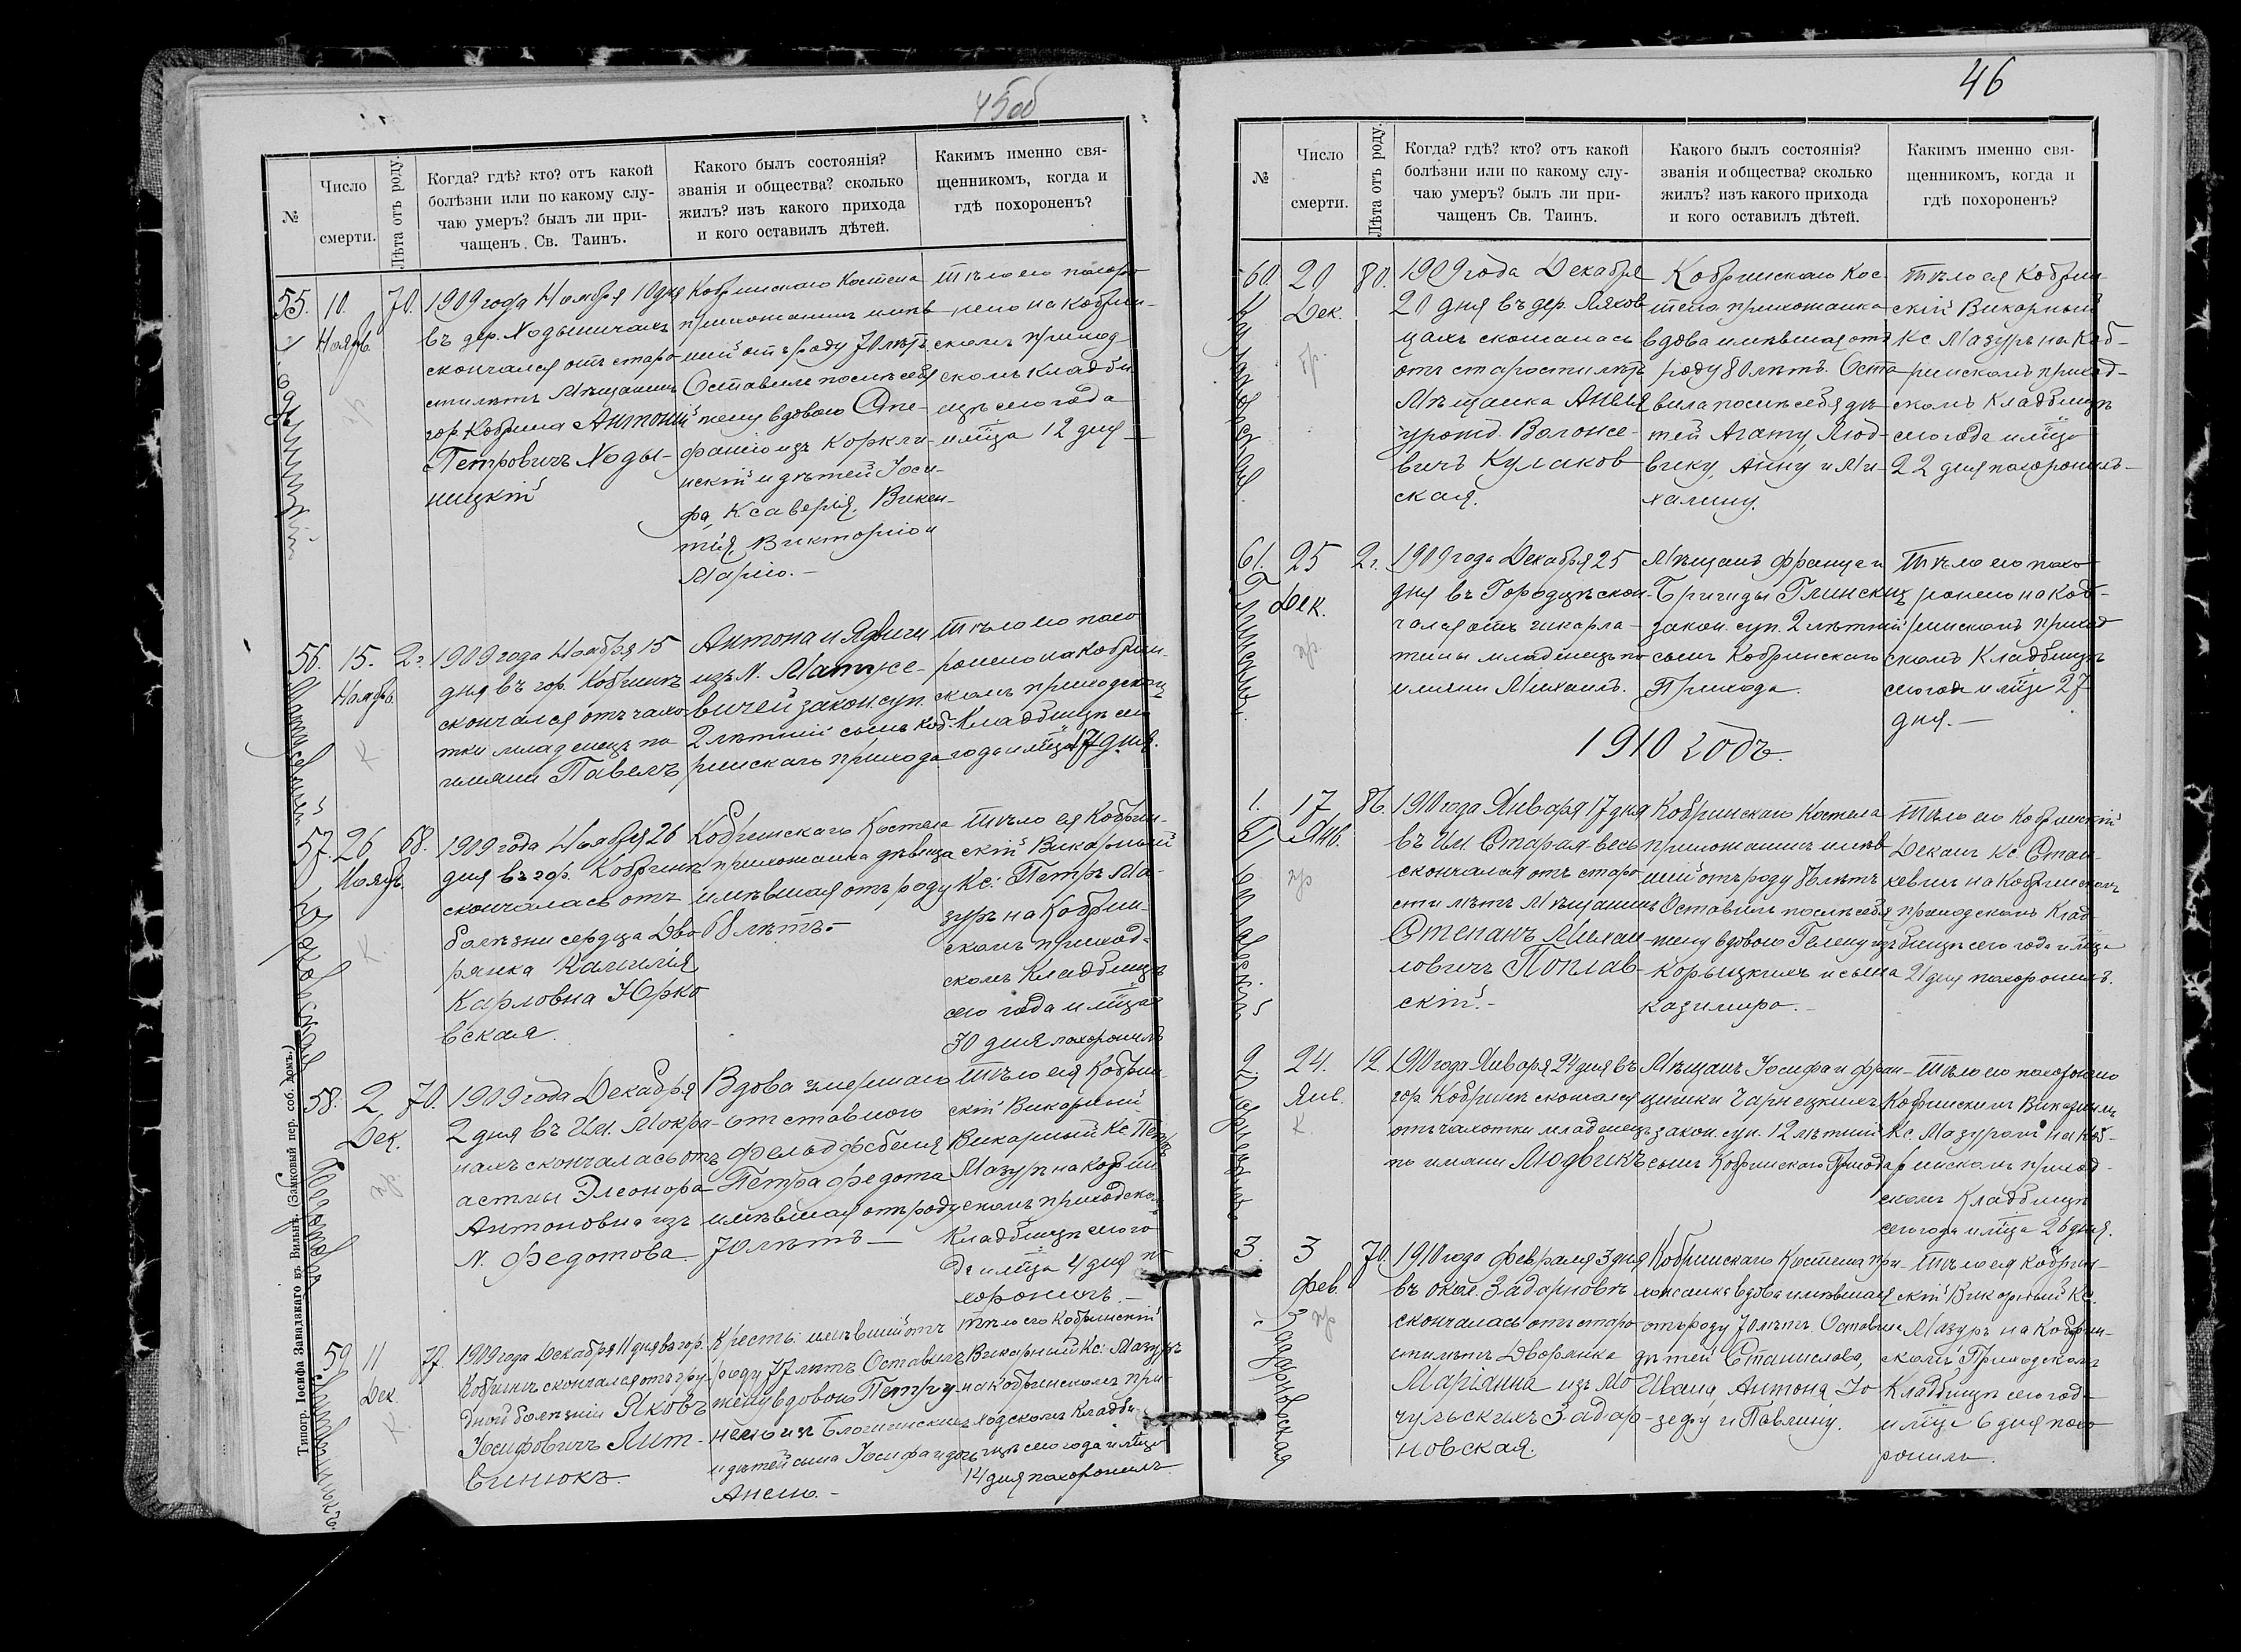 45об
№
Число
смерти.
Лѣта отъ роду.
Когда? гдѣ? кто? отъ какой
болѣзни или по какому слу-
чаю умеръ? былъ ли при-
чащенъ Св. Таинъ.
Какого былъ состоянія?
званія и общества? сколько
жилъ? изъ какого прихода
и кого оставилъ дѣтей.
Какимъ именно свя-
щенникомъ, когда и
гдѣ похороненъ?
55.
10.
Ноябр.
пр
70.
1909 года Ноября 10 дня
въ дер. Ходыничахъ
скончался отъ старо-
сти лѣтъ Мѣщанинъ
гор. Кобрина Антоній
Петровичъ Ходы-
ницкій
Кобринскаго Костела
прихожанинъ имѣв-
шій отъ роду 70 лѣтъ.
Оставилъ послѣ себя
жену вдовою Сте-
фанію изъ
и дѣтей Іоси-
фа, Ксаверія, Викен-
тія, Викторію и
Марію.-
тѣло его похоро-
нено на Кобрин-
скомъ приход-
скомъ кладби-
щѣ сего года
и мѣца 12 дня
56.
15.
Ноябр.
К
2 г.
1909 года Ноября 15
дня въ гор. Кобринѣ
скончался отъ чахо-
тки младенецъ по
имяни Павелъ
Антона и Ядвиги
изъ N. Матусе-
вичей закон. суп.
2 лѣтній сынъ Коб-
ринскаго прихода
тѣло его похо-
ронено на Кобрин-
скомъ приходскомъ
Кладбищѣ сего
года и мѣца 17 дня.
57.
26
Нояб.
К.
68.
1909 года Ноября 26
дня въ гор. Кобринѣ
скончалась отъ
болѣзни сердца Дво-
рянка Камилія
Карловна Юрко-
вская.
Кобринскаго Костела
прихожанка дѣвица
имѣвшая отъ роду
68 лѣтъ.-
Тѣло ея Кобрин-
скій Викарный
Кс: Петръ Ма-
зуръ на Кобрин-
скомъ приход-
скомъ Кладбищѣ
сего года и мѣца
30 дня похоронилъ
58.
2
Дек.
пр
70.
1909 года Декабря
2 дня въ Им. Мокра-
нахъ скончалась отъ
астмы Элеонора
Антоновна изъ
N. Федотова.
Вдова умершаго
отставного
Фельдфебеля
Петра Федота
имѣвшая отъ роду
70 лѣтъ —
Тѣло ея Кобрин-
скій Викарный
Викарный Кс. Петръ
Мазуръ на Кобрин-
скомъ приходском
Кладбищѣ сего го-
да и мѣца 4 дня по-
хоронилъ.—
59
11
Дек.
К
77.
1909 года Декабря 11 дня въ гор.
Кобринѣ скончался отъ гру-
дной болѣзни Яковъ
Іосифовичъ Лит-
винюкъ.
Крестъ. имѣвшій отъ
роду 77 лѣтъ Оставилъ
жену вдовою
и дѣтей сына Іосифа и дочь
Анелю.-
тѣло его Кобринскій
Викарный Кс: Мазуръ
на Кобринскомъ при-
ходскомъ Кладби-
щѣ сего года и мѣца
14 дня похоронилъ.
Ходыницкій
Матусевичъ
Юрковская
Федотова
Литвинюкъ.
Типогр. Іосифа Завадзкаго въ Вильнѣ. (Замковый пер. соб. домъ.)
46
№
Число
смерти.
Лѣта отъ роду.
Когда? гдѣ? кто? отъ какой
болѣзни или по какому слу-
чаю умеръ? былъ ли при-
чащенъ Св. Таинъ.
Какого былъ состоянія?
званія и общества? сколько
жилъ? изъ какого прихода
и кого оставилъ дѣтей.
Какимъ именно свя-
щенникомъ, когда и
гдѣ похороненъ?
60.
20
Дек.
пр.
80.
1909 года Декабря
20 дня въ дер. Ляхов-
цахъ скончалась
отъ старости лѣтъ
Мѣщанка Анеля
урожд. Воложе-
вичъ Кулаков-
ская.
Кобринскаго Кос-
тела прихожанка
вдова имѣвшая отъ
роду 80 лѣтъ. Оста-
вила послѣ себя дѣ-
тей Агату, Люд-
вику, Анну и Ми-
халину.
тѣло ея Кобрин-
скій Викарный
Кс. Мазуръ на Коб-
ринскомъ приход-
скомъ Кладбищѣ
сего года и мѣца
22 дня похоронилъ-
61.
25
Дек.
пр.
2 г.
1909 года Декабря 25
дня въ Городцѣ скон-
чался отъ шкарла-
тины младенецъ по
имяни Михаилъ.
Мѣщанъ Франца и
Бригиды Глинскихъ
закон. суп. 2 лѣтній
сынъ Кобринскаго
Прихода.
тѣло его похо-
ронено на Коб-
ринскомъ приход-
скомъ Кладбищѣ
сего года и мѣца 27
дня.—
1910 годъ.
1.
17
Янв.
пр
86.
1910 года Января 17 дня
въ Им. Старая-весь
скончался отъ старо-
сти лѣтъ Мѣщанинъ
Степанъ Михаи-
ловичъ Поплав-
скій.-
Кобринскаго Костела
прихожанинъ имѣв-
шій отъ роду 86 лѣтъ
Оставилъ послѣ себя
жену вдовою Гелену изъ
Корыцкихъ и сына
Казимира.-
тѣло его Кобринскій
Деканъ Кс. Стан-
кевичъ на Кобринскомъ
приходскомъ Клад-
бищѣ сего года и мѣца
21 дня похоронилъ.
2.
24.
Янв.
К.
12.
1910 года Января 24 дня въ
гор. Кобринѣ скончался
отъ чахотки младенецъ
по имяни Людвикъ
Мѣщанъ Іосифа и Фран-
цишки Чарнецкихъ
закон. суп. 12 лѣтній
сынъ Кобринскаго Прихода
Тѣло его похоронено
Кобринскимъ Викарнымъ
Кс. Мазуромъ на Коб-
ринскомъ приход-
скомъ Кладбищѣ
сего года и мѣца 26 дня.
3.
3
Фев.
пр
70.
1910 года Февраля 3 дня
въ окол. Задарновѣ
скончалась отъ старо-
сти лѣтъ Дворянка
Маріанна изъ Мо-
чульскихъ Задар-
новская.
Кобринскаго Костела при-
хожанка вдова имѣвшая
отъ роду 70 лѣтъ. Оставила
дѣтей Станислава,
Ивана, Антона, Іо-
зефу и Павлину.
Тѣло ея Кобрин-
скій Викарный Кс.
Мазуръ на Кобрин-
скомъ Приходскомъ
Кладбищѣ сего года
и мѣца 6 дня похо-
ронилъ.
Кулаковская
Глинскій.
Поплавскій
Чарнецкій
Задарновская